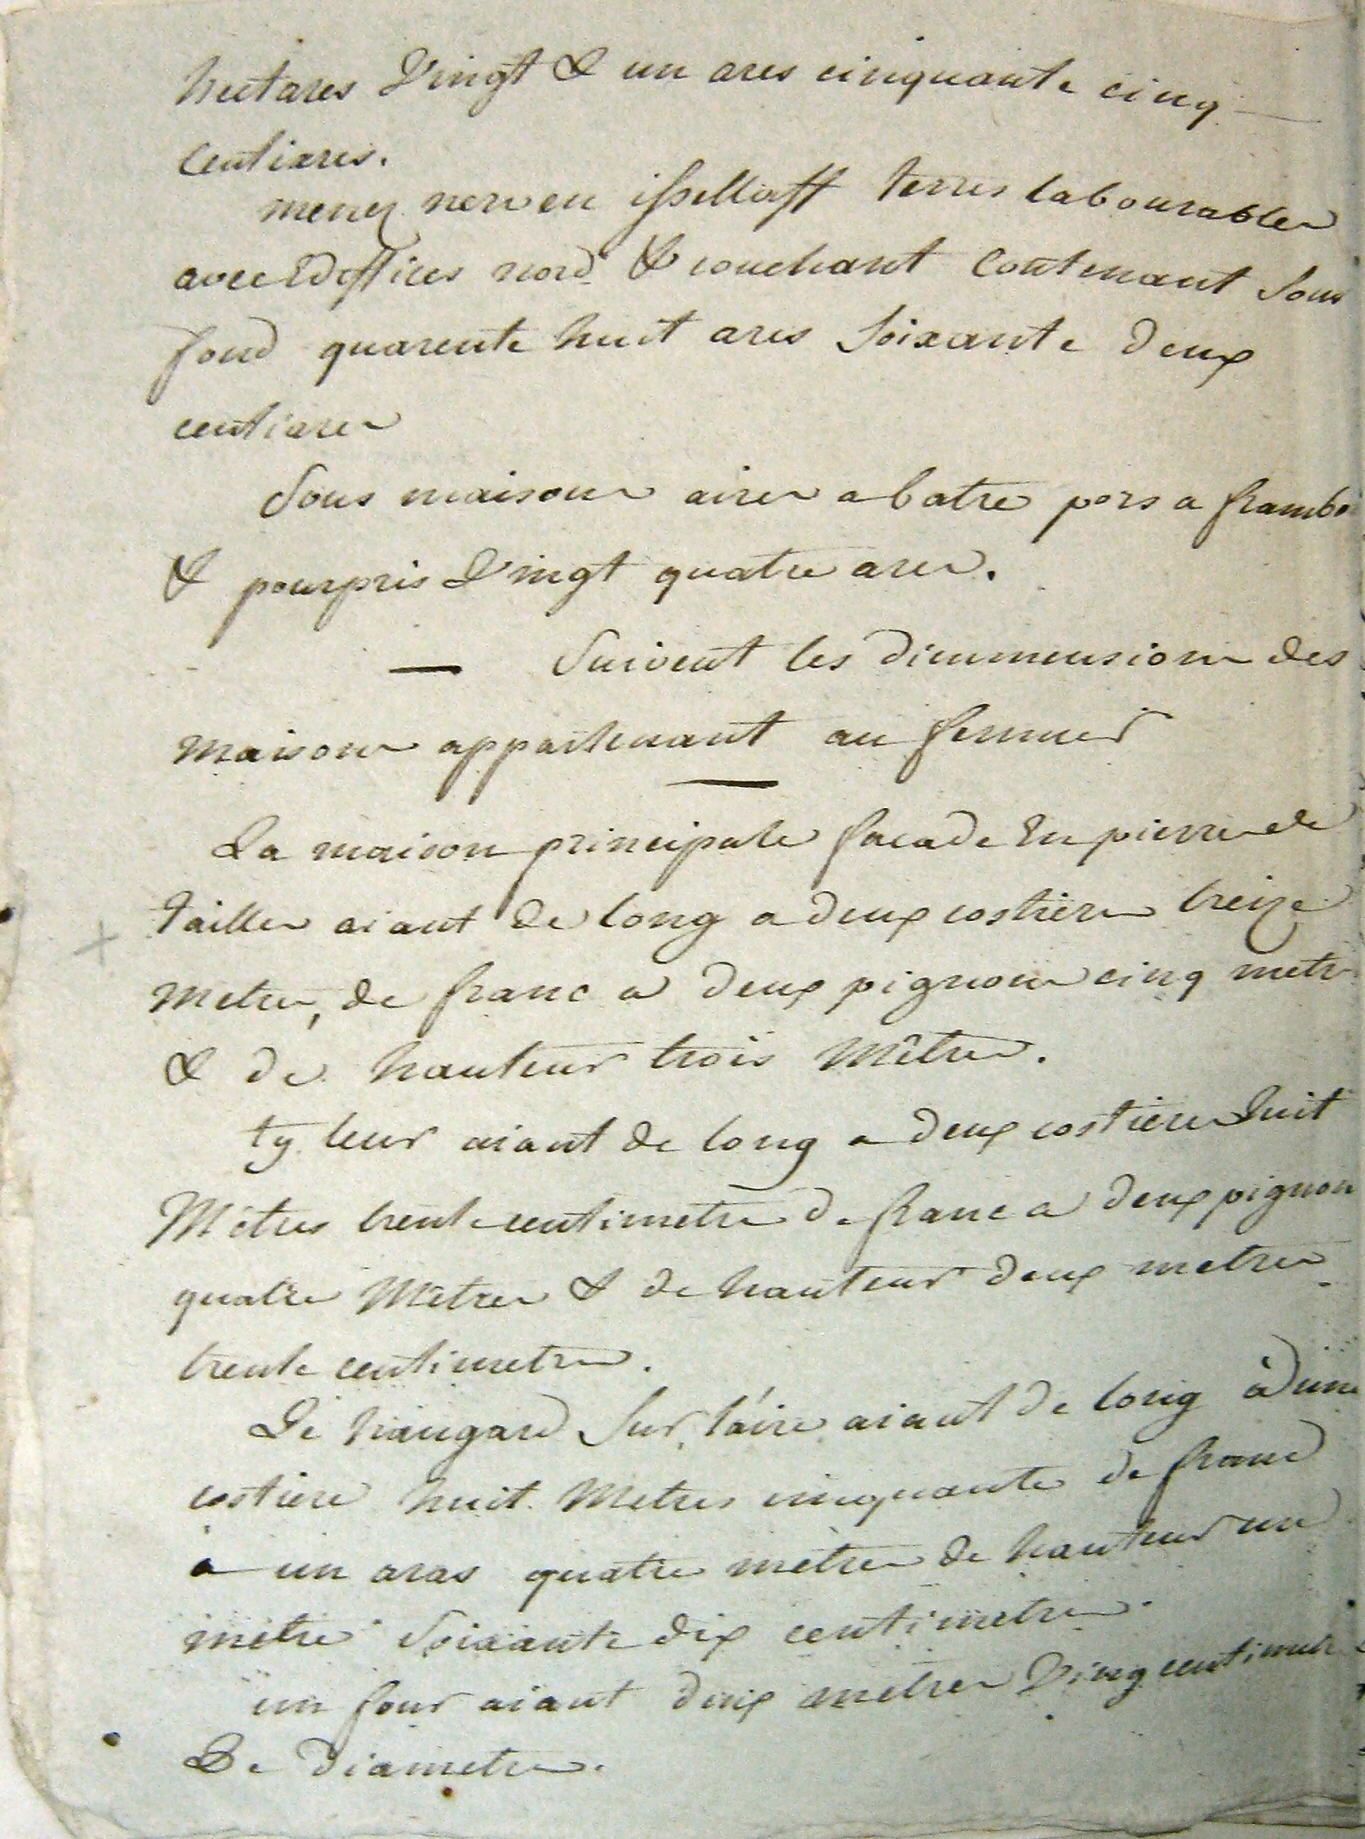 hectares Vingt & un ares cinquante cinq
Centiares.
menez nerven issellaff terres labourables
avec Ediffices nord & couchant Contenant Sous
fond quarente huit ares Soixante deux
centiares
Sous maisons aires a batre pors a frambo
& pourpris Vingt quatre ares.
— Suivent les dimmensions des
maisons appartenant au fermier
La maison principale facade En pierre de
tailles aiant de long a deux costieres treize
metres, de franc a deux pignons cinq metr
& de hauteur trois Mêtres.
ty leur aiant de long a deux costieres huit
Métres trente centimetres de franc a deux pignon
quatre Métres & de hauteur deux metres
trente centimetres.
Le hangard Sur l'aire aiant de long à une
costiere huit Metres cinquante de franc
a un aras quatre mètres de hauteur un
mètre Soixante dix centimètres.
un four aiant deux mètres Vingt centimetr
De diametre.